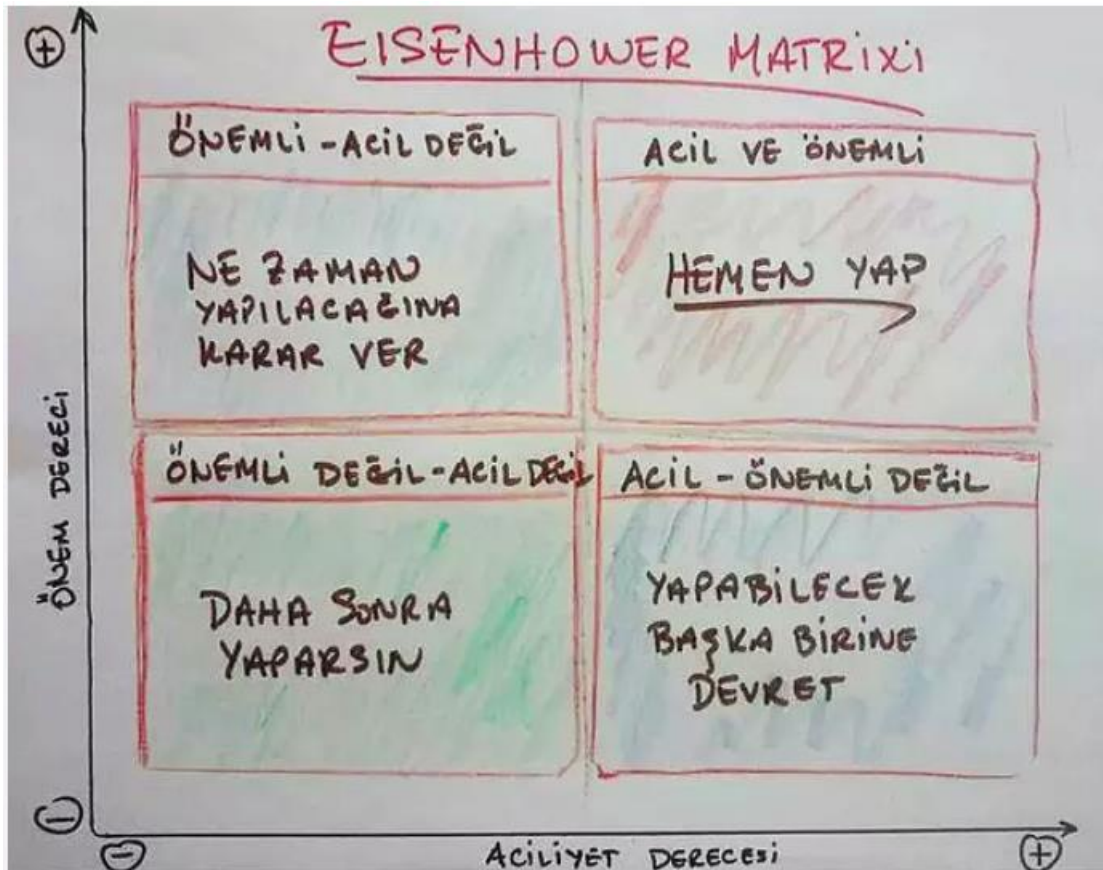 EISENHOWER MATRİXİ
ÖNEMLİ - ACİL DEĞİL
NE ZAMAN
YAPILACAĞINA
KARAR VER
ACİL VE ÖNEMLİ
HEMEN YAP
ÖNEMLİ DEĞİL - ACİL DEĞİL
DAHA SONRA
YAPARSIN
ACİL - ÖNEMLİ DEĞİL
YAPABİLECEK
BAŞKA BİRİNE
DEVRET
ÖNEM DERECİ
ACİLİYET DERECESİ
+
-
-
+